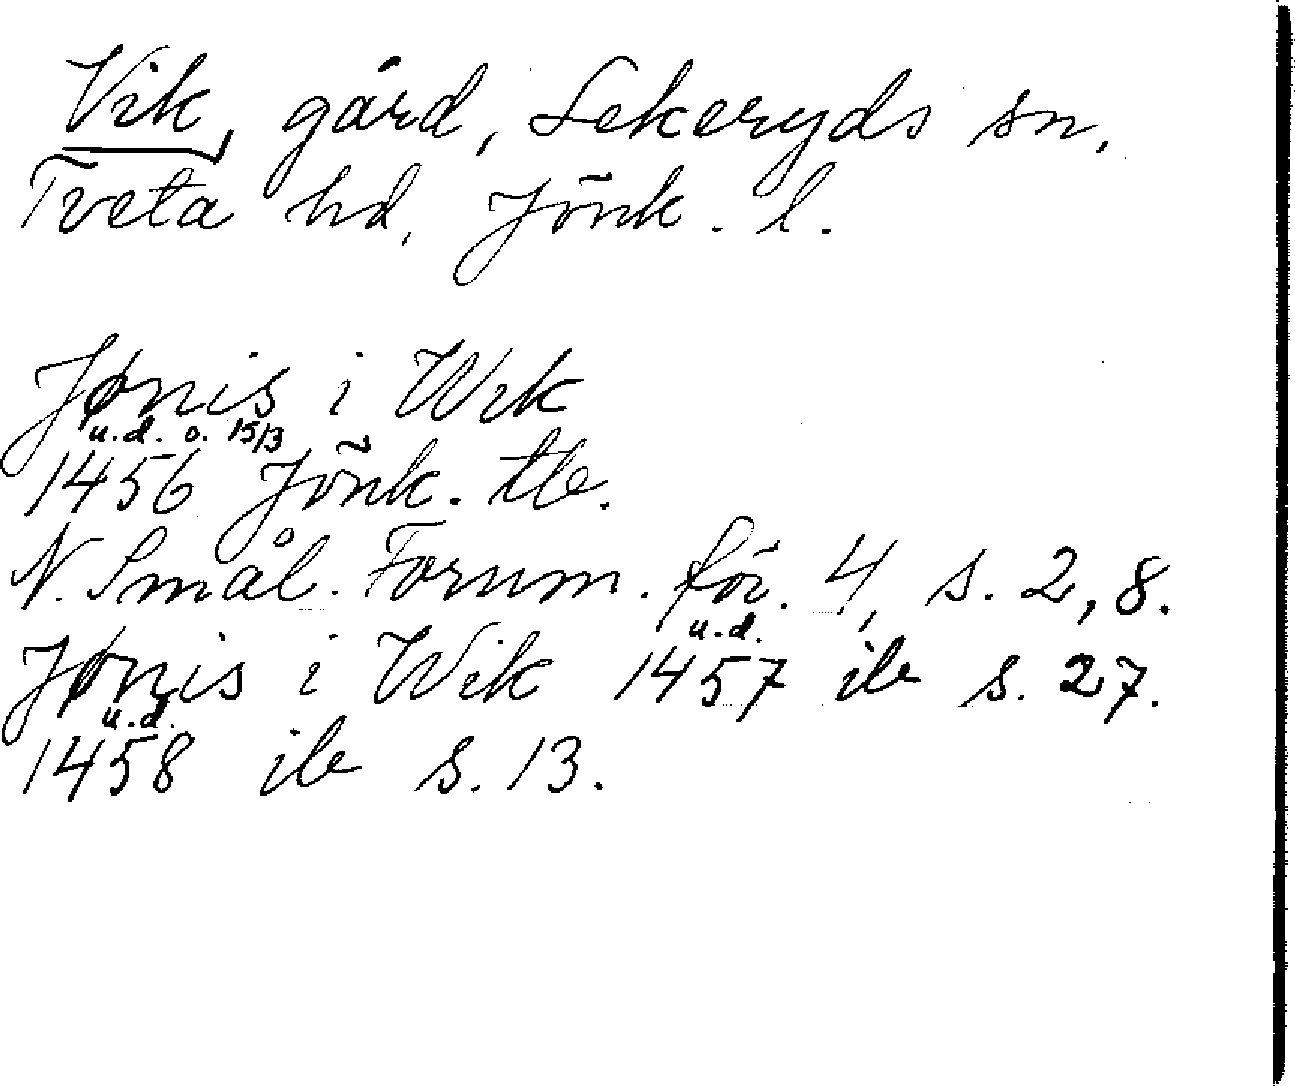 Vik, gård, Lekeryds sn,
Tveta hd, Jönk. l.
Jønis i Wik
u.d. o. 15/3
1456 Jönk. tb.
N. Smål. Fornm. för. 4, s. 2, 8.
u.d.
Jønis i Wik 1457 ib s. 27.
u.d.
1458 ib s. 13.